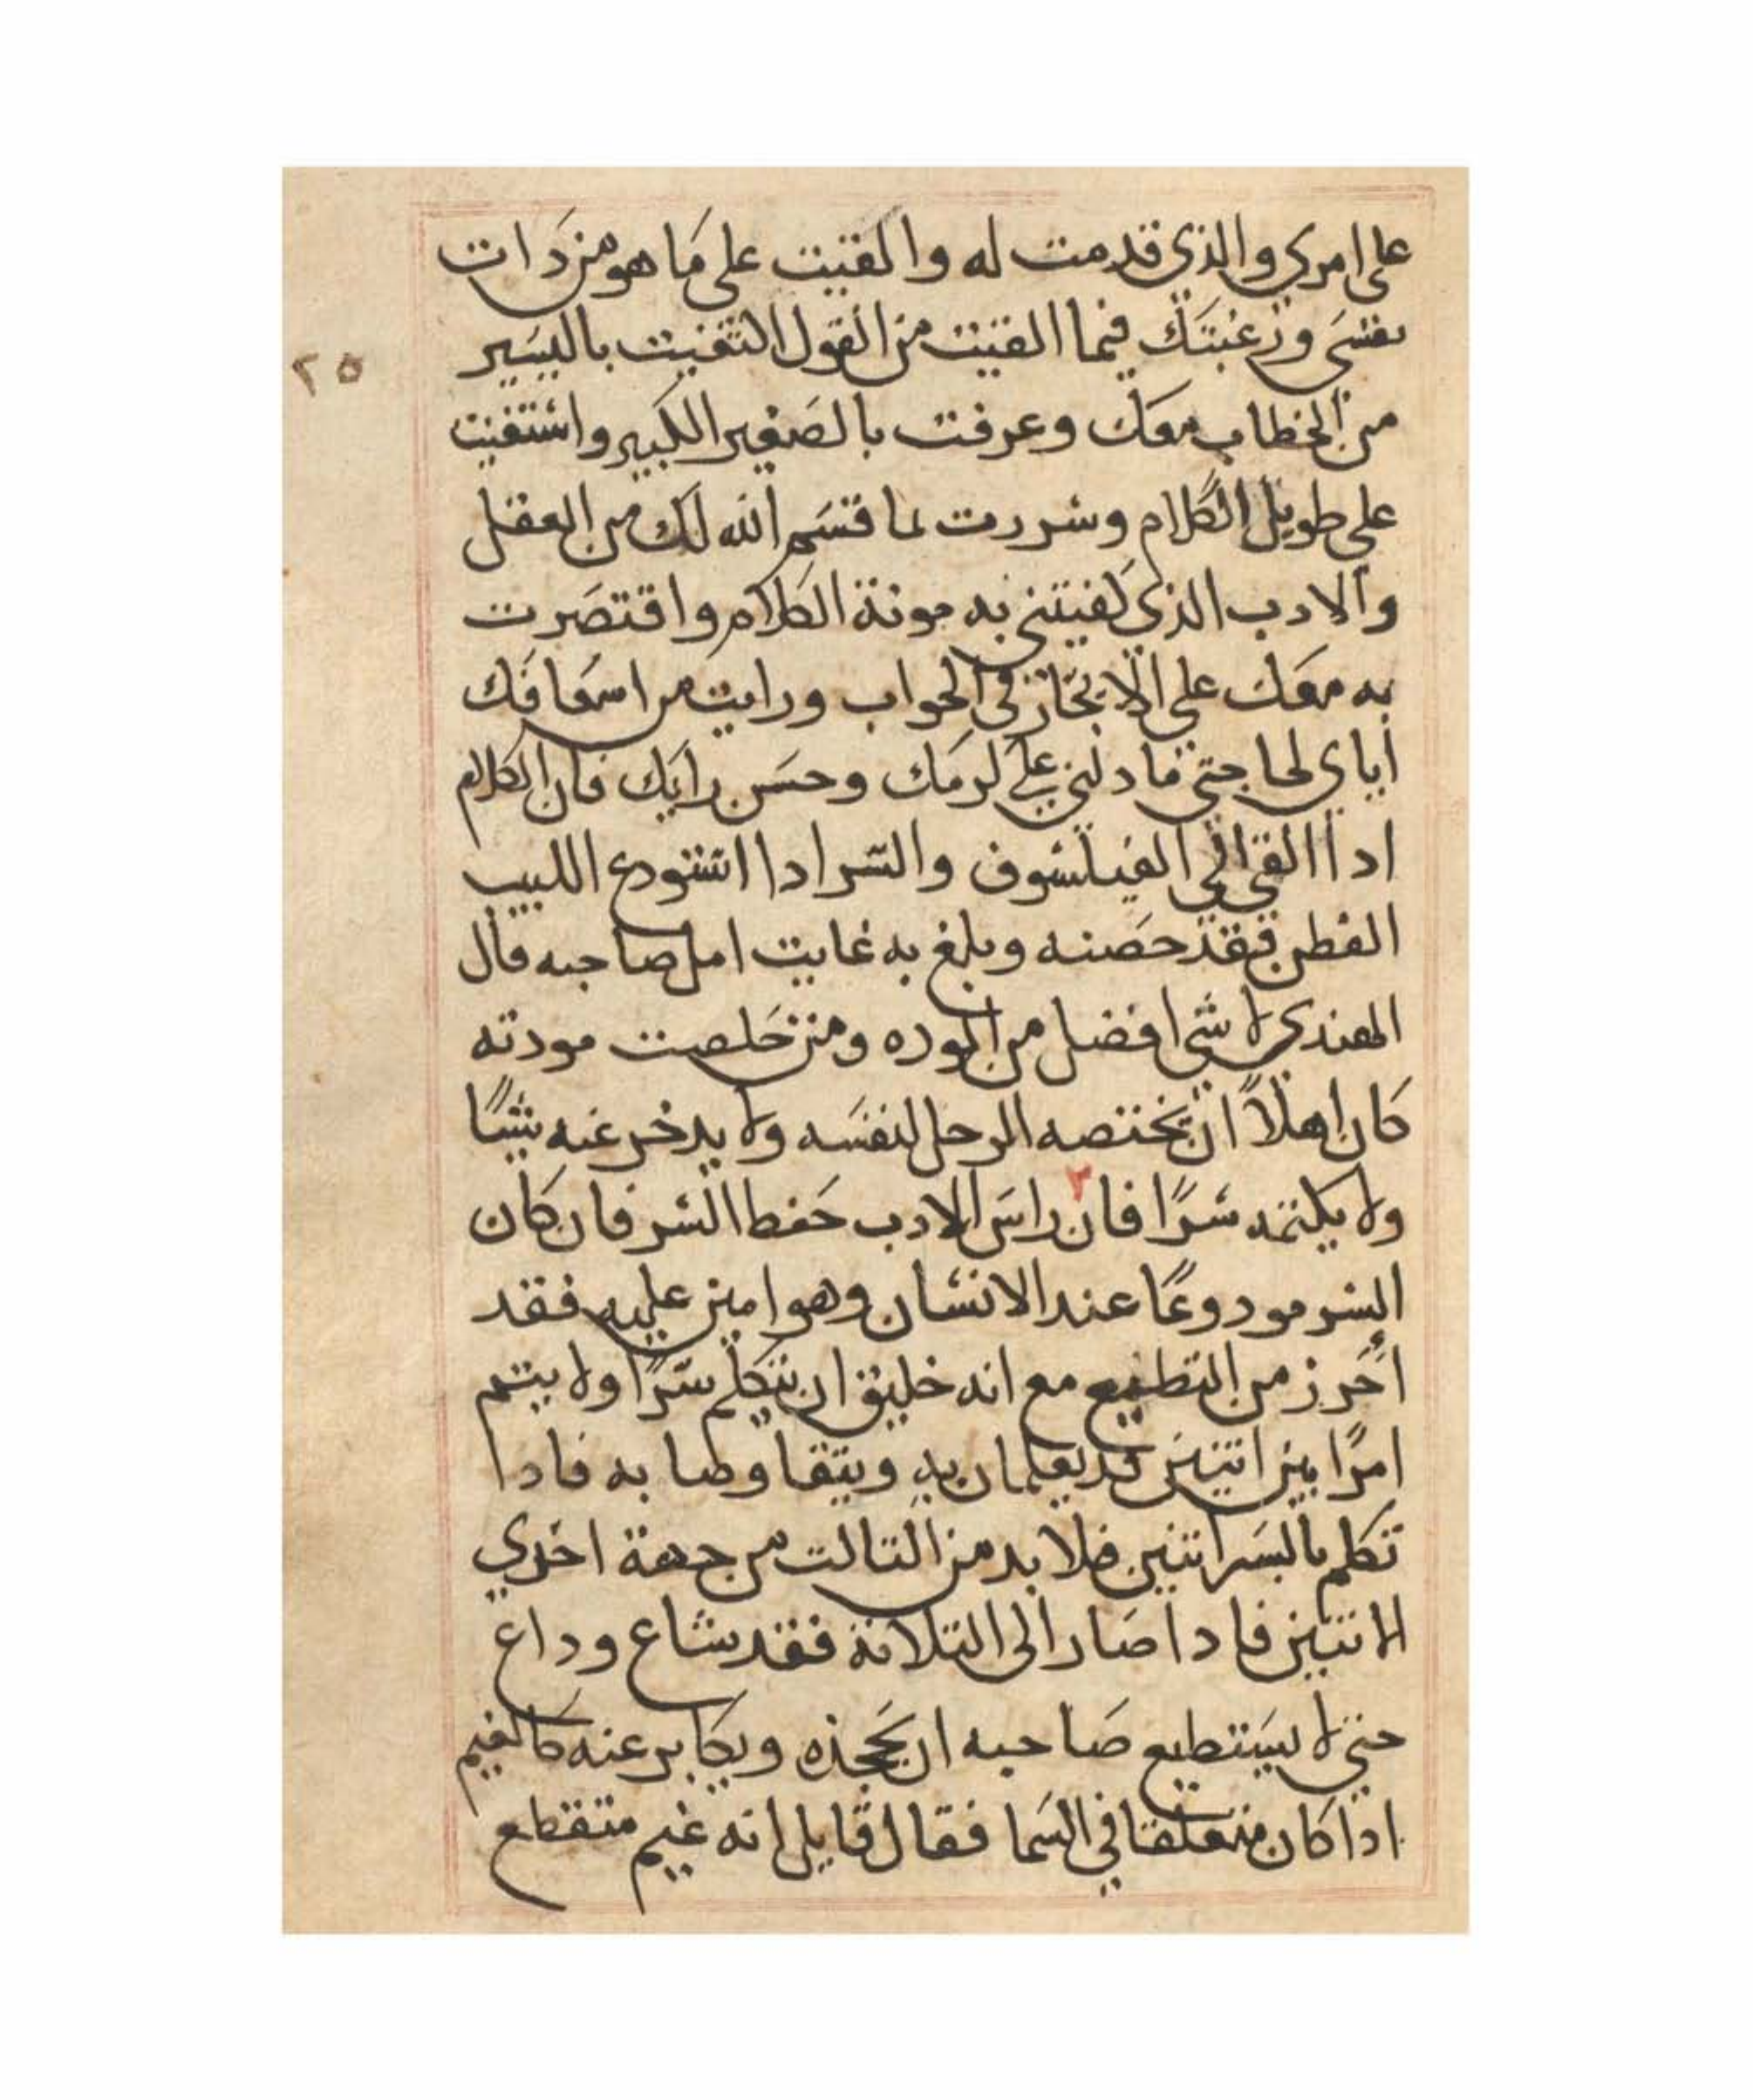 على امري والذي قدمت له والقيت على ما هو من دات
نفسي ورغبتك فيما القيت من القول اكتفيت باليسير
٢٥
من الخطاب معك وعرفت بالصغير الكبير واستغنيت
على طويل الكلام وسررت لما قسم الله لك من العقل
والادب الذي كفيتني به مونة الكلام واقتصرت
به معك على الايجاز في الجواب ورايت من اسعافك
اياي لحاجتي ما دلني على كرمك وحسن رايك فان الكلام
ادا القي الي الفيلسوف والسر ادا استودع اللبيب
الفطن فقد حصنه وبلغ به غايت امل صاحبه قال
الهندي لا شي افضل من الموده ومن خلصت مودته
كان اهلاً ان يختصه الرجل لنفسه ولا يدخر عنه شياً
ولا يكتمه سرًا فان راس الادب حفظ السر فان كان
السر مودوعًا عند الانسان وهو امين عليه فقد
أحرز من التطييع مع انه خليق ان يتكلم سرًا ولا يتم
امرًا بين اتنين قد يعلمان به ويتفاوضا به فادا
تكلم بالسر اتنين فلا بد من التالت من جهة احدي
الاتنين فادا صار الى التلاتة فقد شاع وداع
حتي لا يستطيع صاحبه ان يجحده ويكابر عنه كالغيم
اذا كان متعلقا في السما فقال قايل انه غيم متقطع